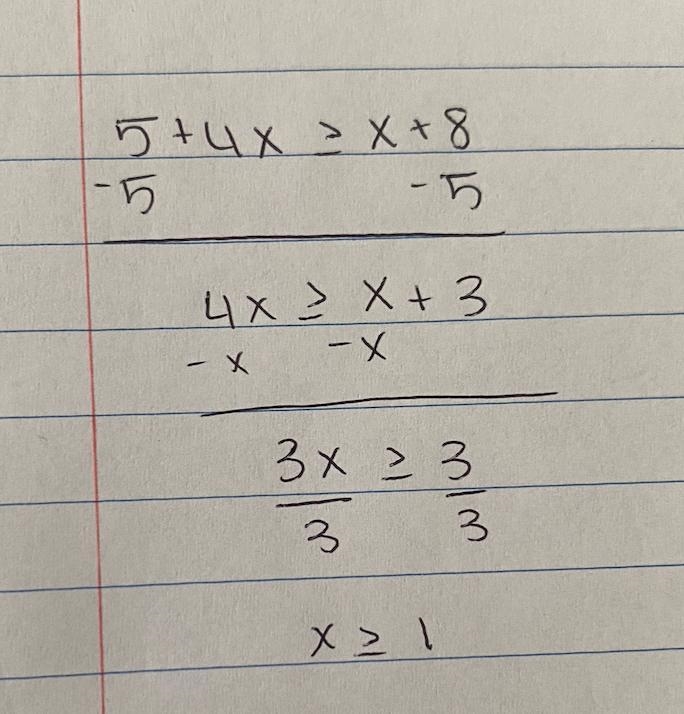 5 + 4x ≥ x + 8
-5 -5
4x ≥ x + 3
-x -x
3x ≥ 3
3 3
x ≥ 1